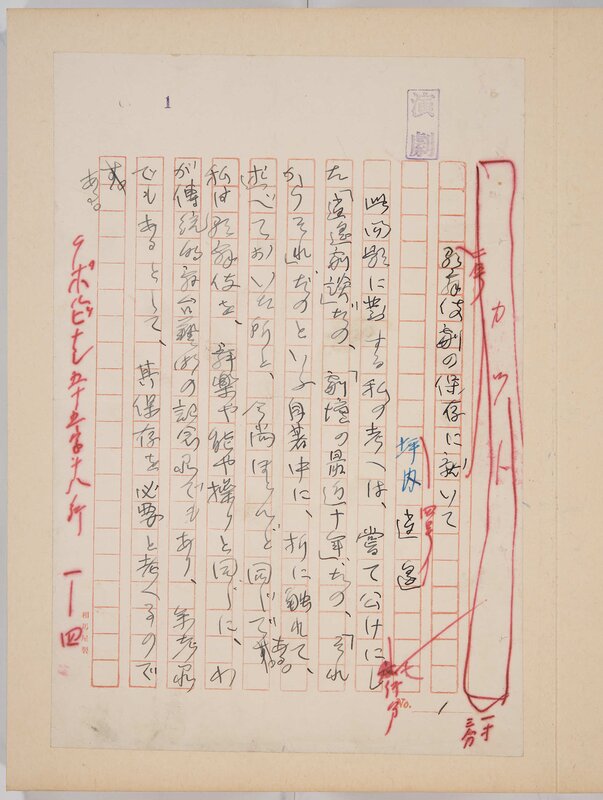 1
演劇
カット
一寸三分
歌舞伎劇の保存に就いて
二号
坪内逍遥
四号
七行分
No. 1
此問題に對する私の考へは、嘗て公けにし
た「逍遥劇談」だの、「劇壇の最近十年」だの、「それ
からそれ」だのといふ自著中に、折に触れて、
述べておいた所と、今尚ほとんど同じである。
私は歌舞伎を、舞樂や能や操りと同じに、わ
が傳統的舞台藝術の記念品でもあり、参考品
でもあるとして、其保存を必要と考へるので
ある。
九ポルビナシ五十五字十八行 一ー四
相馬屋製